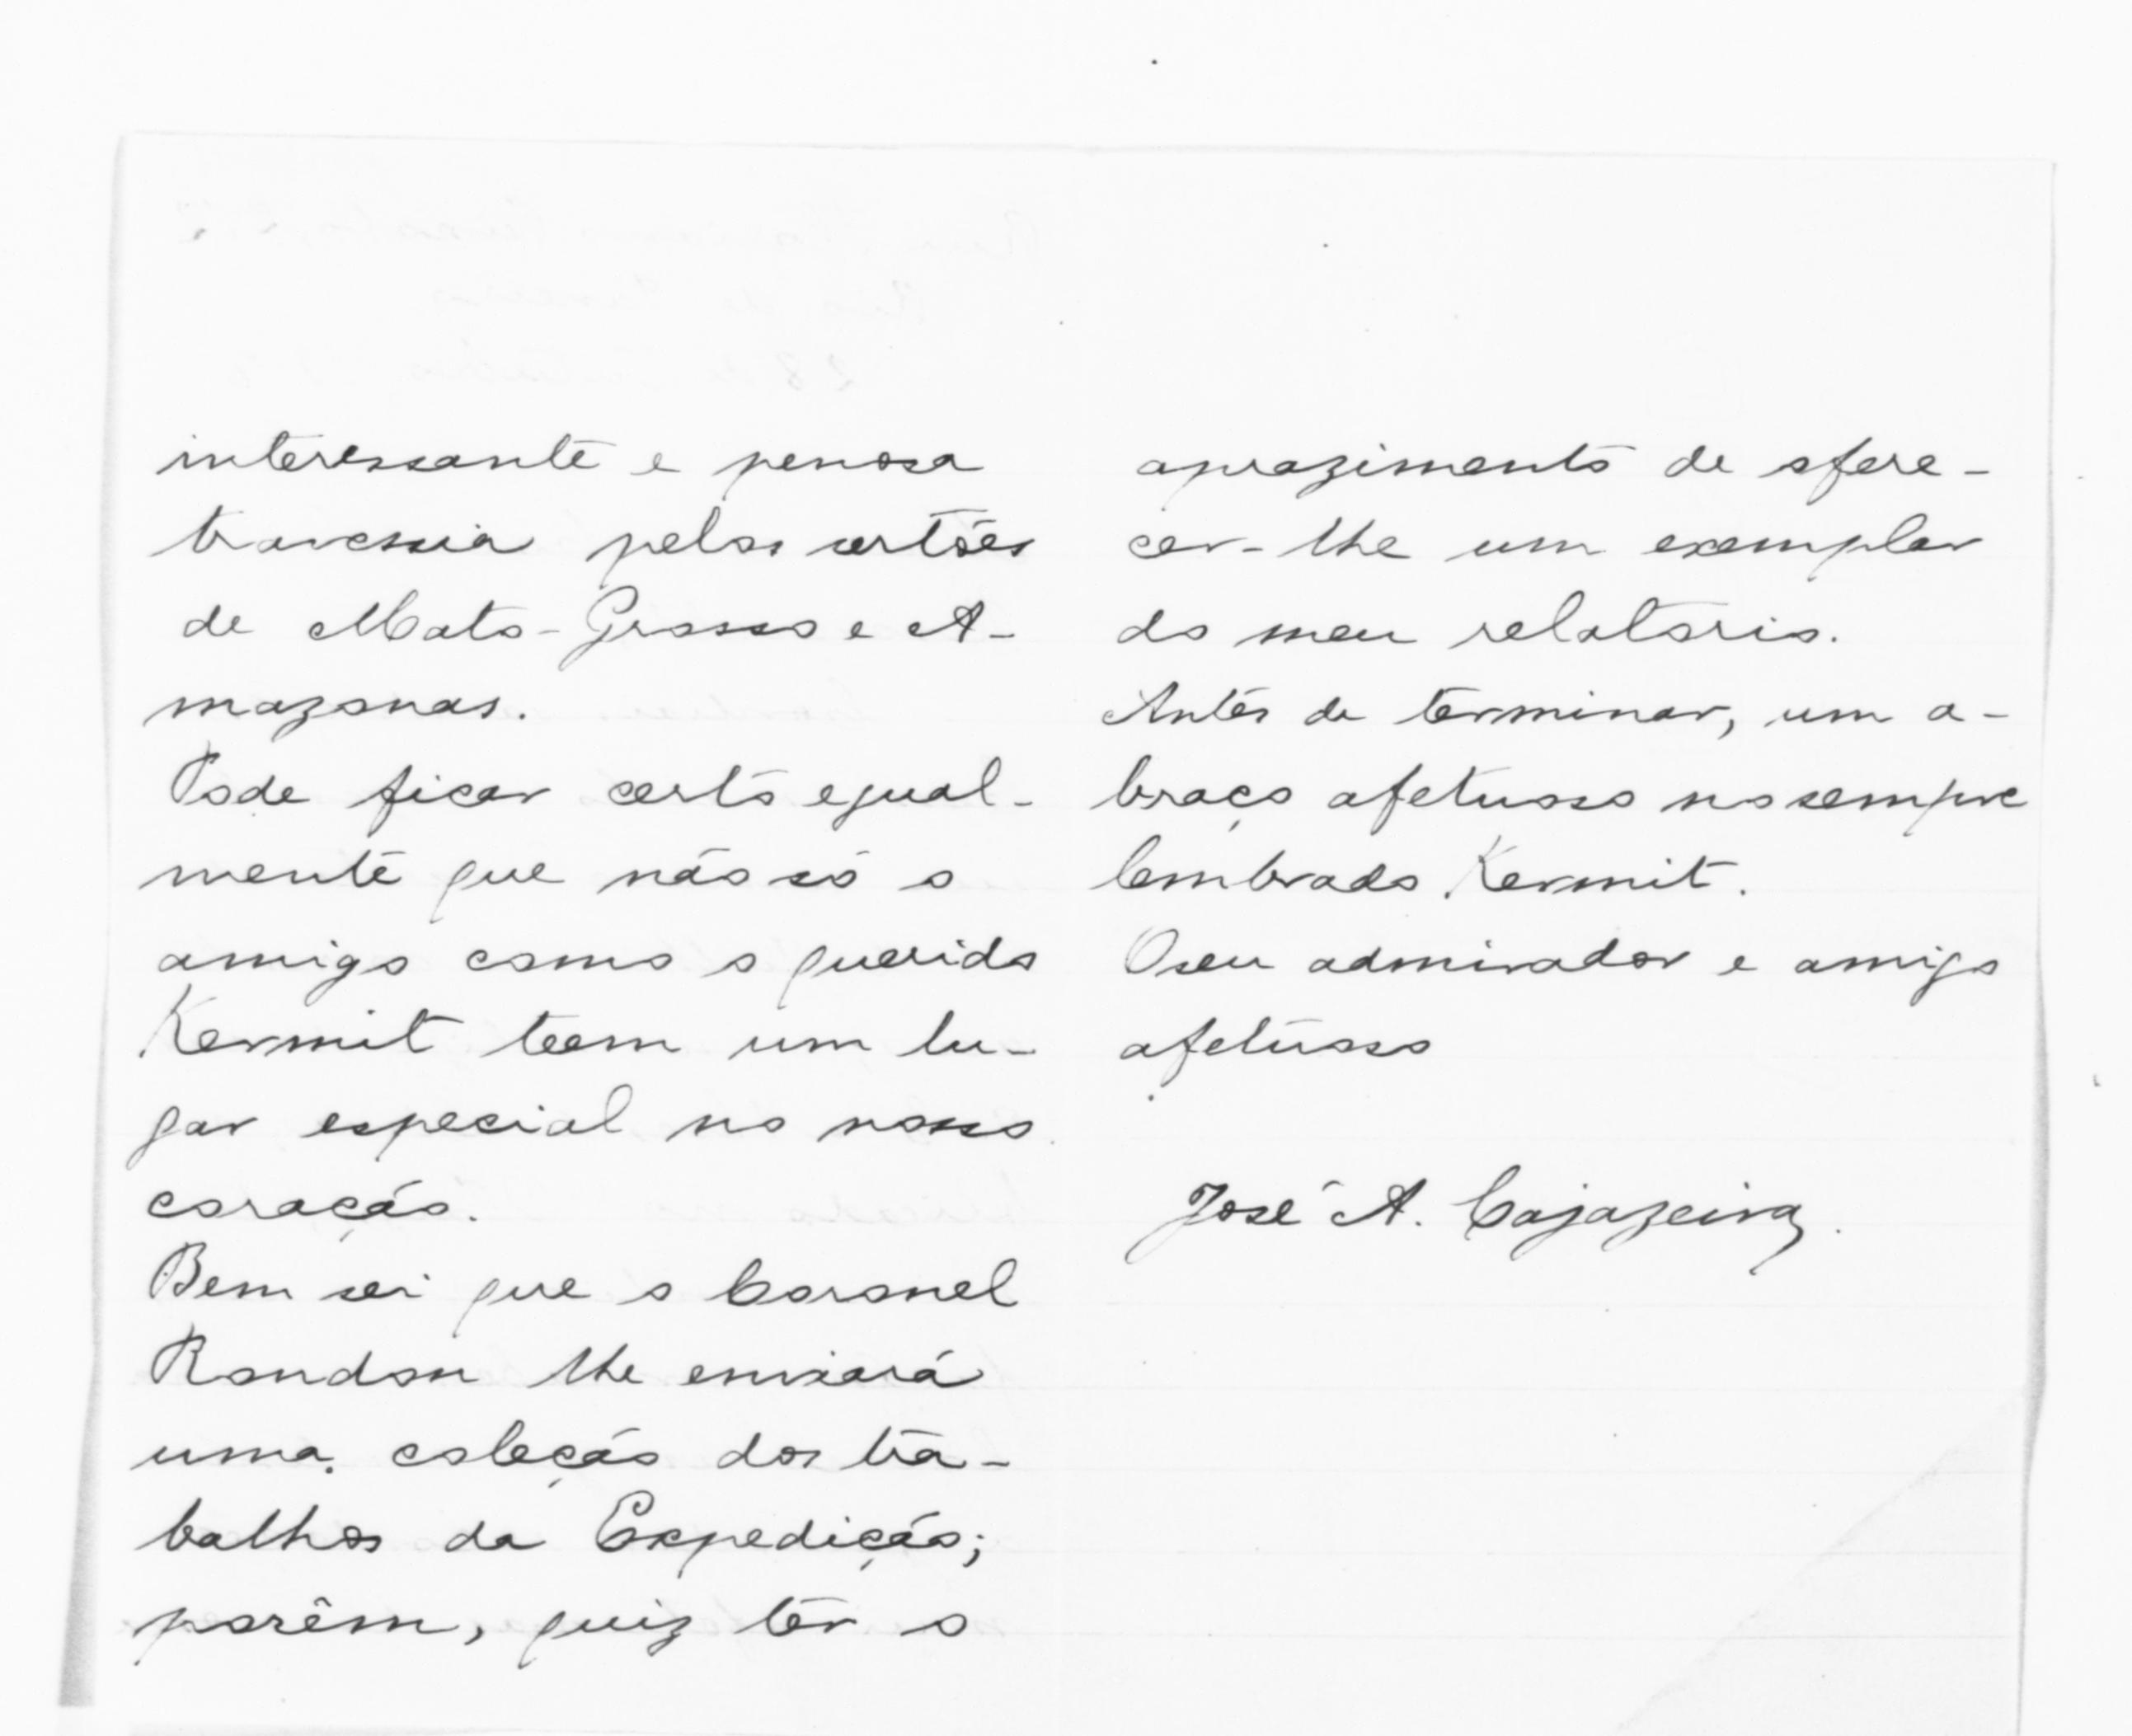 interessante e penosa
travessia pelos sertões
de Mato-Grosso e A-
mazonas.
Pode ficar certo egual-
mente que não só o
amigo como o querido
Kermit teem um lu-
gar especial no nosso
coração.
Bem sei que o Coronel
Rondon lhe enviará
uma coleção dos tra-
balhos da Expedição;
porêm, quiz ter o
aprazimento de ofere-
cer-lhe um exemplar
do meu relatorio.
Antes de terminar, um a-
braço afetuoso no sempre
lembrado Kermit.
O seu admirador e amigo
afetuoso
José A. Cajazeira.